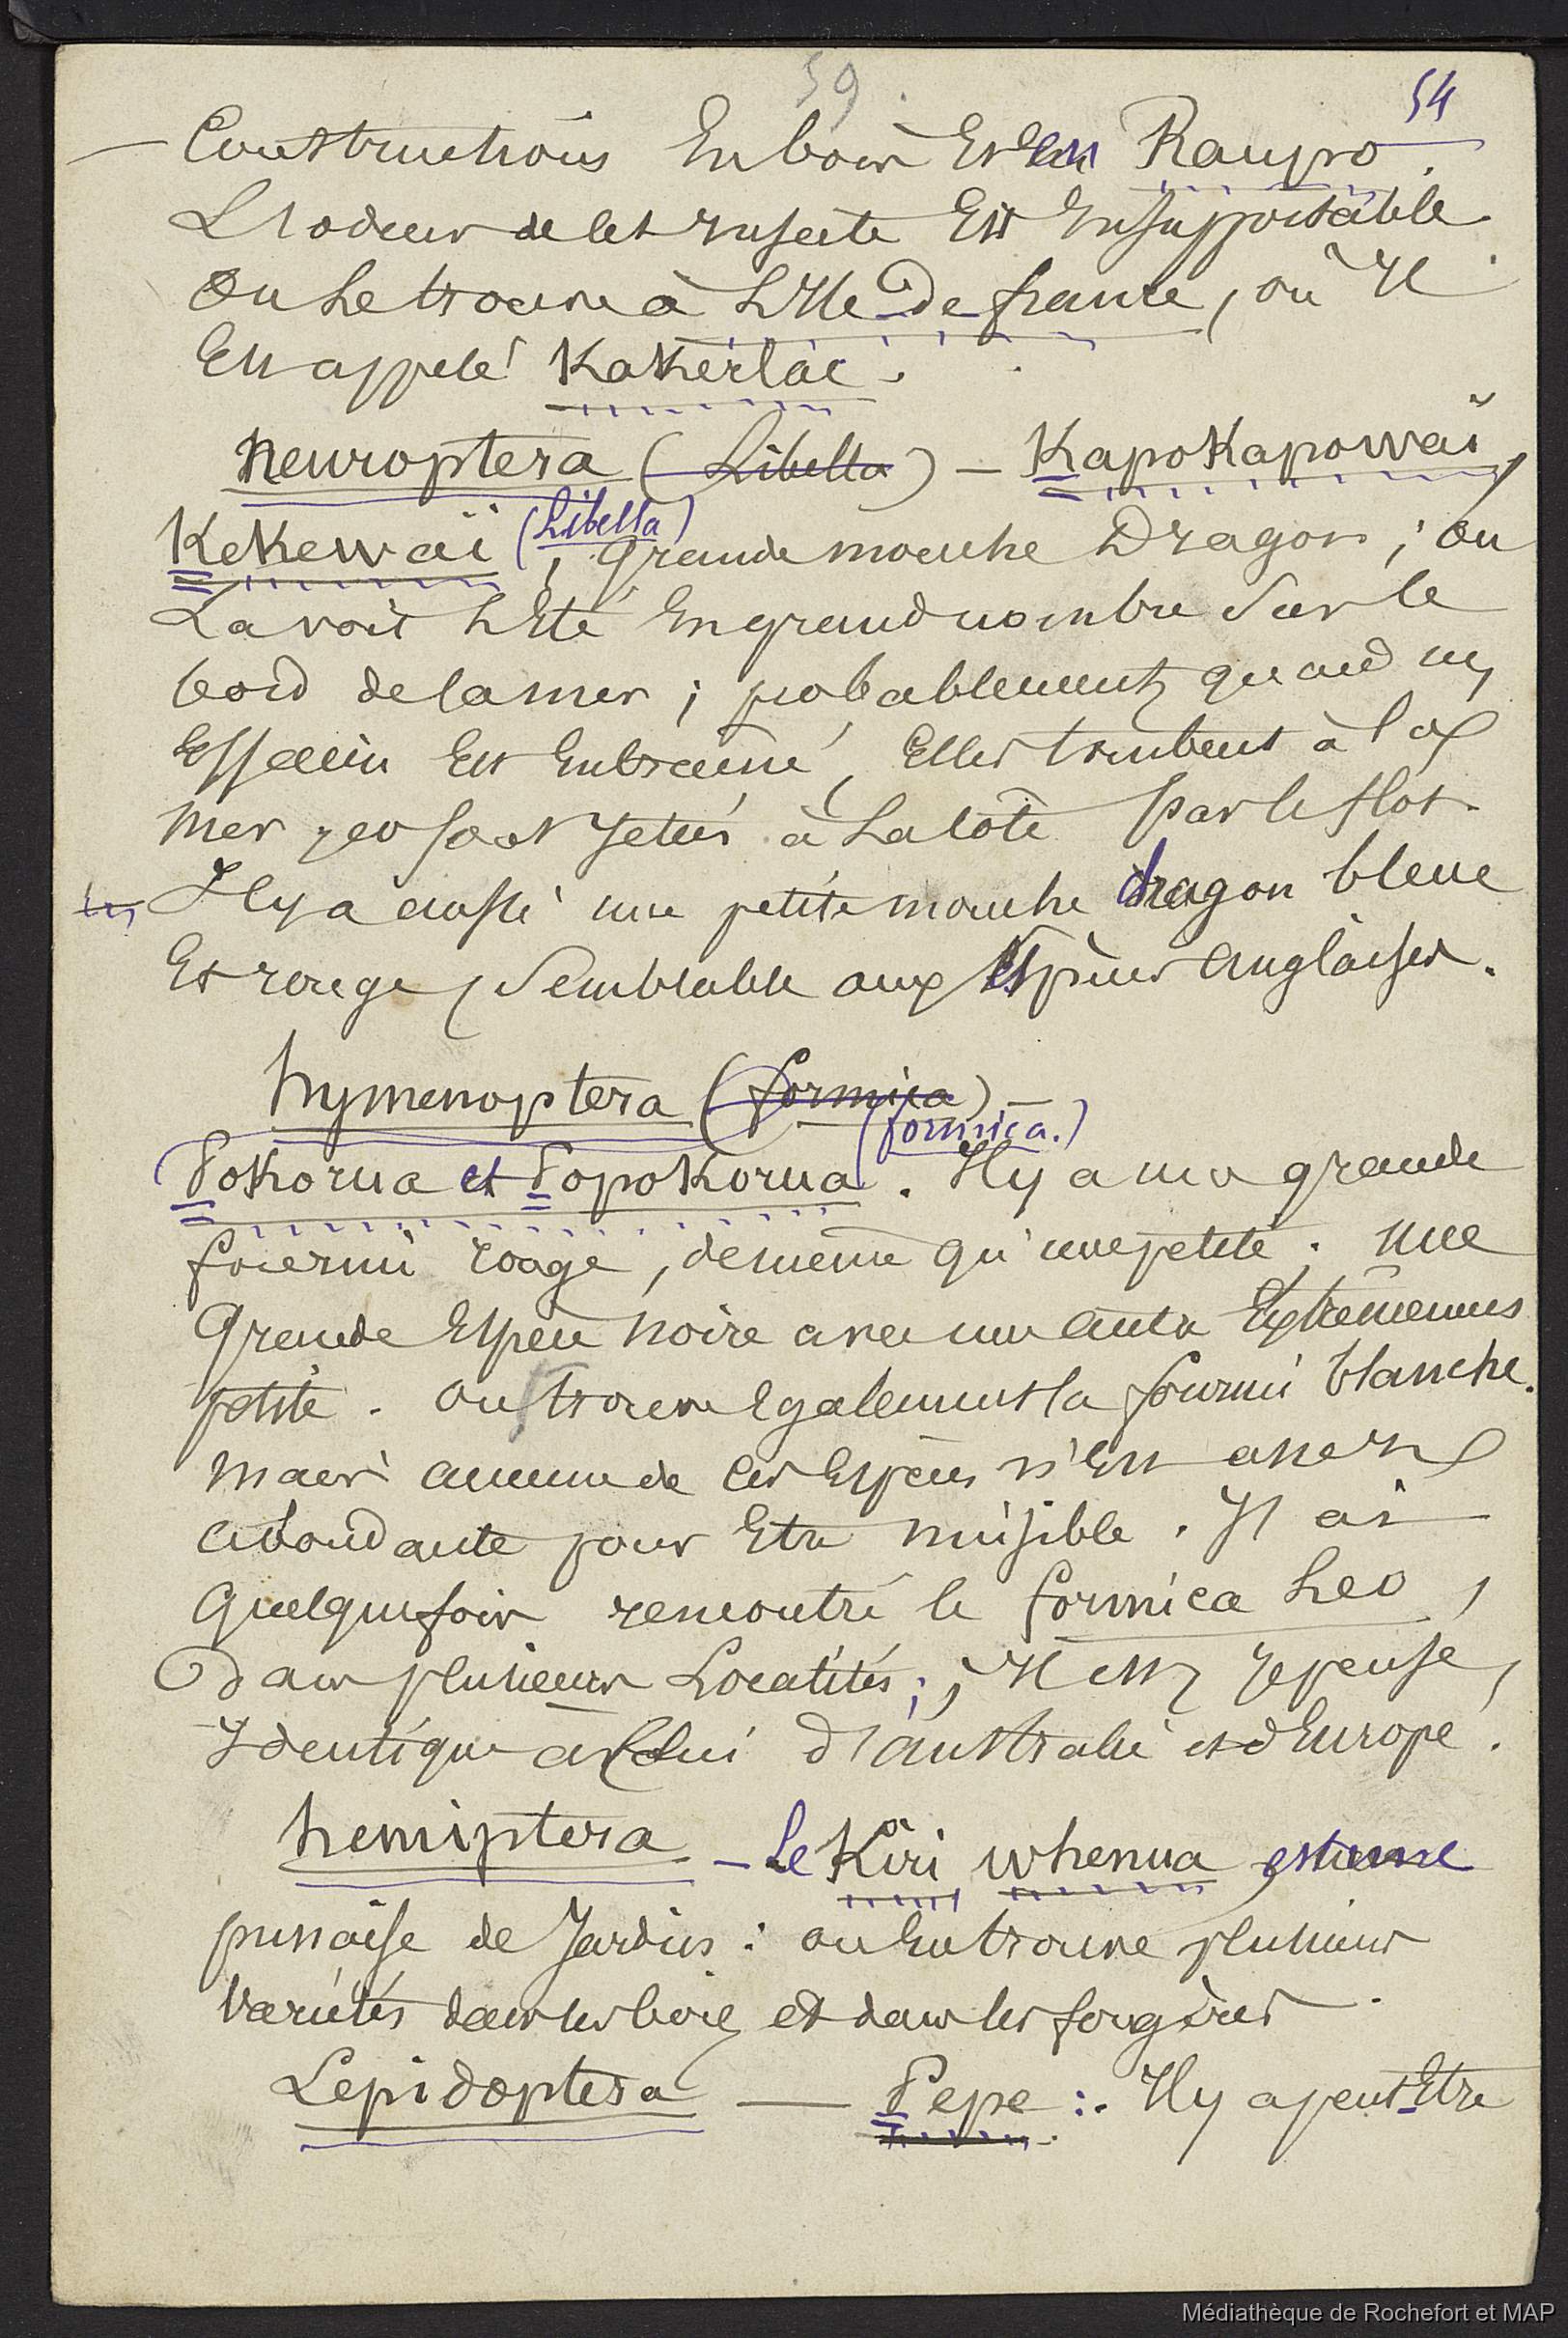 59.
54
— Constructions En bois Et en Raupo.
L'odeur de cet Insecte Est Insupportable.
On le trouve à L'Ile-De-france, où Il
Est appelé Kakerlac.
Neuroptera (Libella) — Kapokapowaï,
Kekewaï (Libella), grande mouche Dragon ; on
La voit L'Eté En grand nombre Sur le
bord de la mer ; probablement quand un
Essaim Est Entrainé, Elles tombent à la
mer et sont Jetées à La côte par le flot.
Il y a aussi une petite mouche dragon bleue
Et rouge, Semblable aux Espèces anglaises.
hymenoptera (formica) —
(formica.)
Pokorua et Popokorua. Il y a une grande
fourmi rouge, de même qu'une petite ; une
Grande Espèce noire avec une autre Extrêmement
petite. On trouve Egalement la fourmi blanche.
Mais aucune de ces Espèces n'Est assez
abondante pour Etre nuisible. J'ai
quelquefois rencontré le formica Leo,
dans plusieurs Localités ; Il est, Je pense,
Identique à celui d'australie et d'Europe.
hemiptera — Le Kiri whenua est une
punaise de Jardins : on En trouve plusieurs
Variétés dans les bois et dans les fougères.
Lepidoptera — Pepe :. Il y a peut-Etre
Médiathèque de Rochefort et MAP